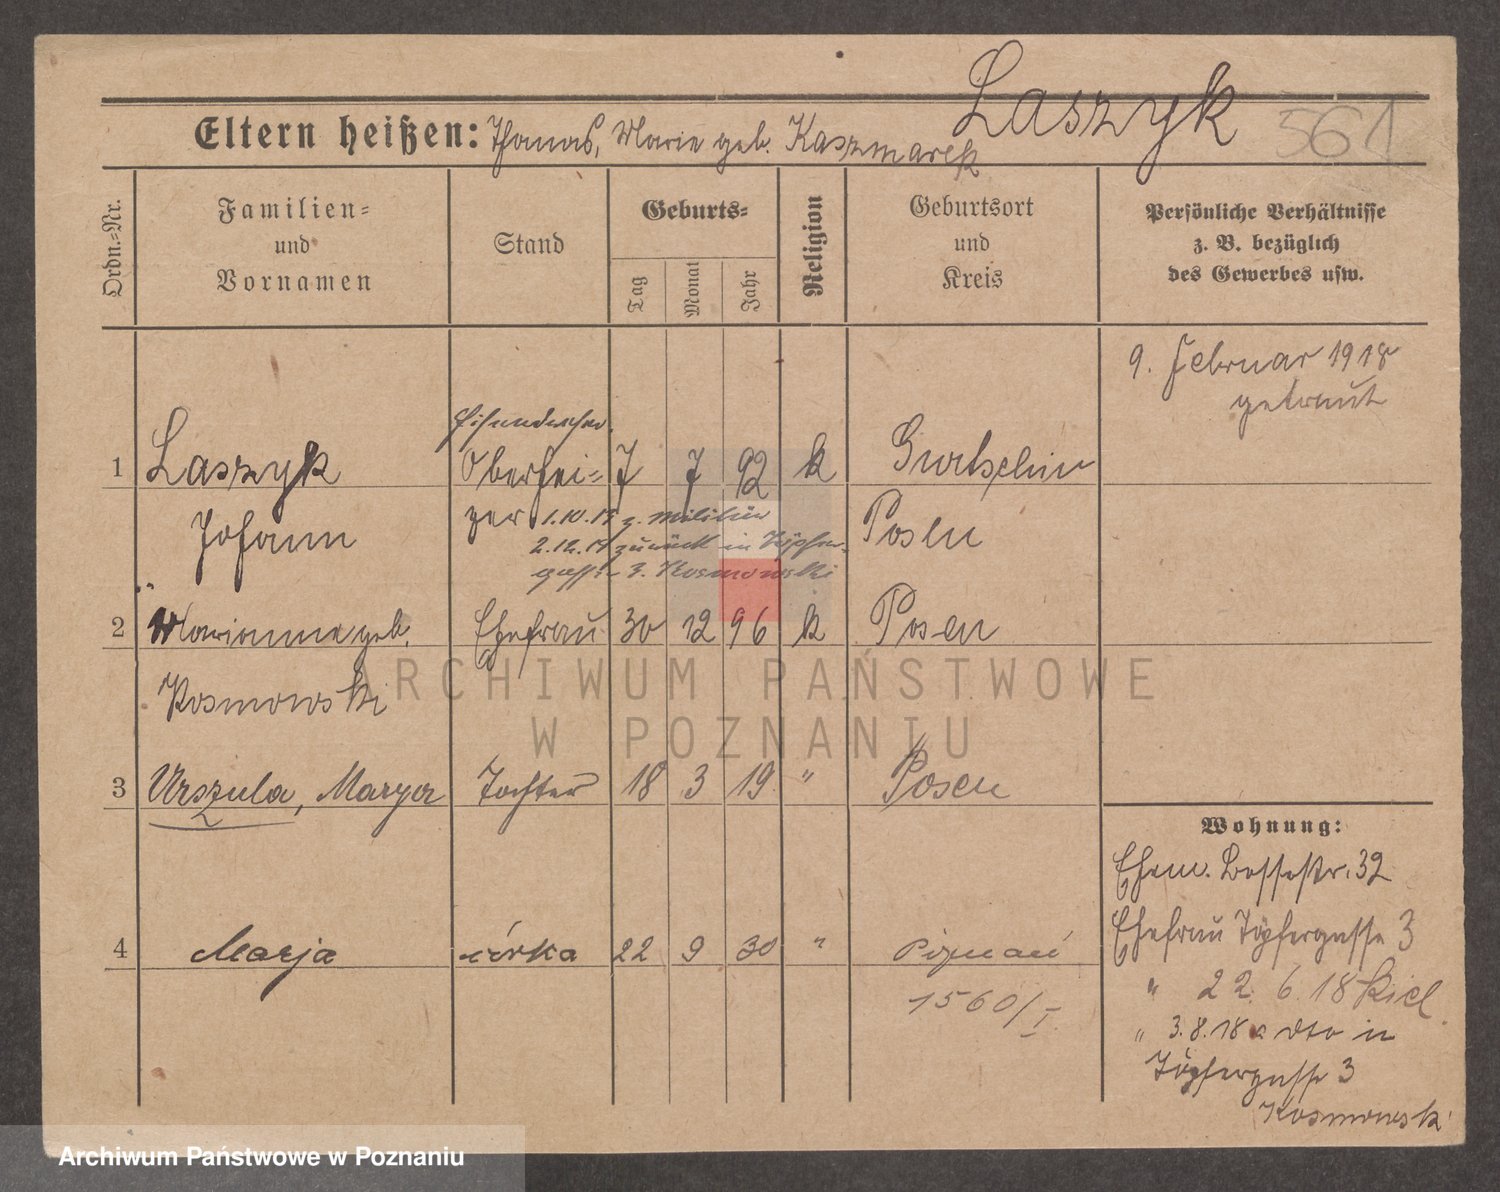 Laszyk 561
Eltern heißen: Thomas, Marie geb. Kaszmarek
Ordn.=Nr.
Familien=
und
Vornamen
Stand
Geburts=
Tag
Monat
Jahr
Religion
Geburtsort
und
Kreis
Persönliche Verhältnisse
z. B. bezüglich
des Gewerbes usw.
9. Februar 1918
getraut
1 Laszyk Oberhei= 7 7 92 k Gurtschin
Johann zer Posen
1.10.15 z. Militär
2.12.17 zurück in Töpfer-
gasse 3. Kosmowski
2 Marianna geb. Ehefrau 30 12 96 k Posen
Kosmowski
3 Urszula, Marya Tochter 18 3 19 " Posen
Wohnung:
Ehem. Bossestr. 32
Ehefrau Töpfergasse 3
4 Marja córka 22 9 30 " Poznań
1560/I.
" 22. 6. 18 Kiel.
" 3.8.18 dto in
Töpfergasse 3
Kosmowski
ARCHIWUM PAŃSTWOWE
W POZNANIU
Archiwum Państwowe w Poznaniu